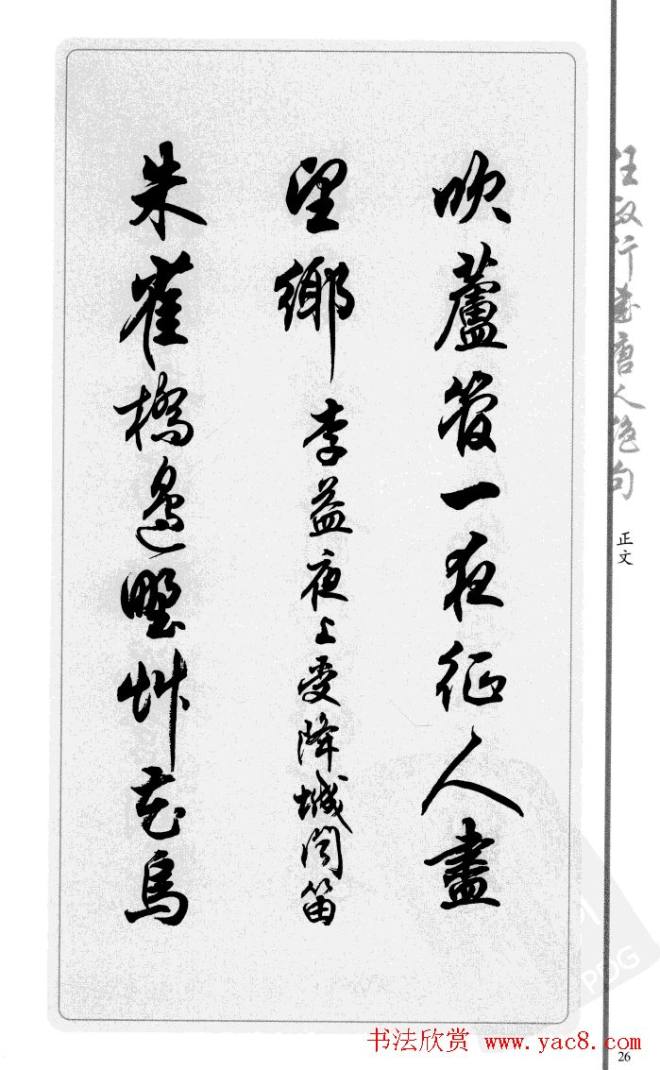 吹蘆管一夜征人盡
望鄉 李益夜上受降城闻笛
朱雀橋邊野艸花烏
任政行書唐人绝句
正文
书法欣赏 www.yac8.com
26
PDG